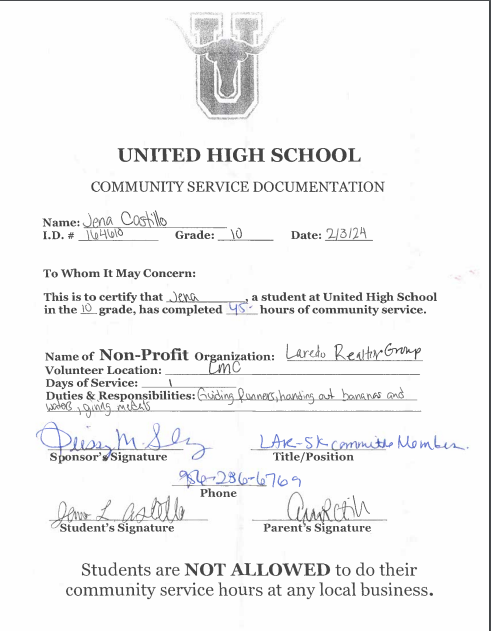 U
UNITED HIGH SCHOOL
COMMUNITY SERVICE DOCUMENTATION
Name: Jena Castillo
I.D. # 164610 Grade: 10 Date: 2/3/24
To Whom It May Concern:
This is to certify that Jena, a student at United High School
in the 10 grade, has completed 45 hours of community service.
Name of Non-Profit Organization: Laredo Realtor Group
Volunteer Location: LMC
Days of Service: 1
Duties & Responsibilities: Guiding runners, handing out bananas and
waters, giving medals
Sponsor's Signature Title/Position
LAR-5K Committee Member
956-236-6769
Phone
Jena L Castillo
Student's Signature Parent's Signature
Students are NOT ALLOWED to do their
community service hours at any local business.